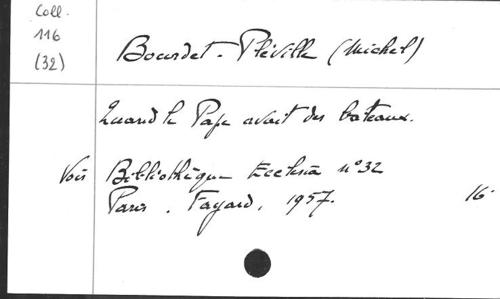 Coll.
116
(32)
Bourdet-Pléville (Michel)
Quand le Pape avait des bateaux.
Voir Bibliothèque Ecclesia n° 32
Paris. Fayard, 1957. 16°